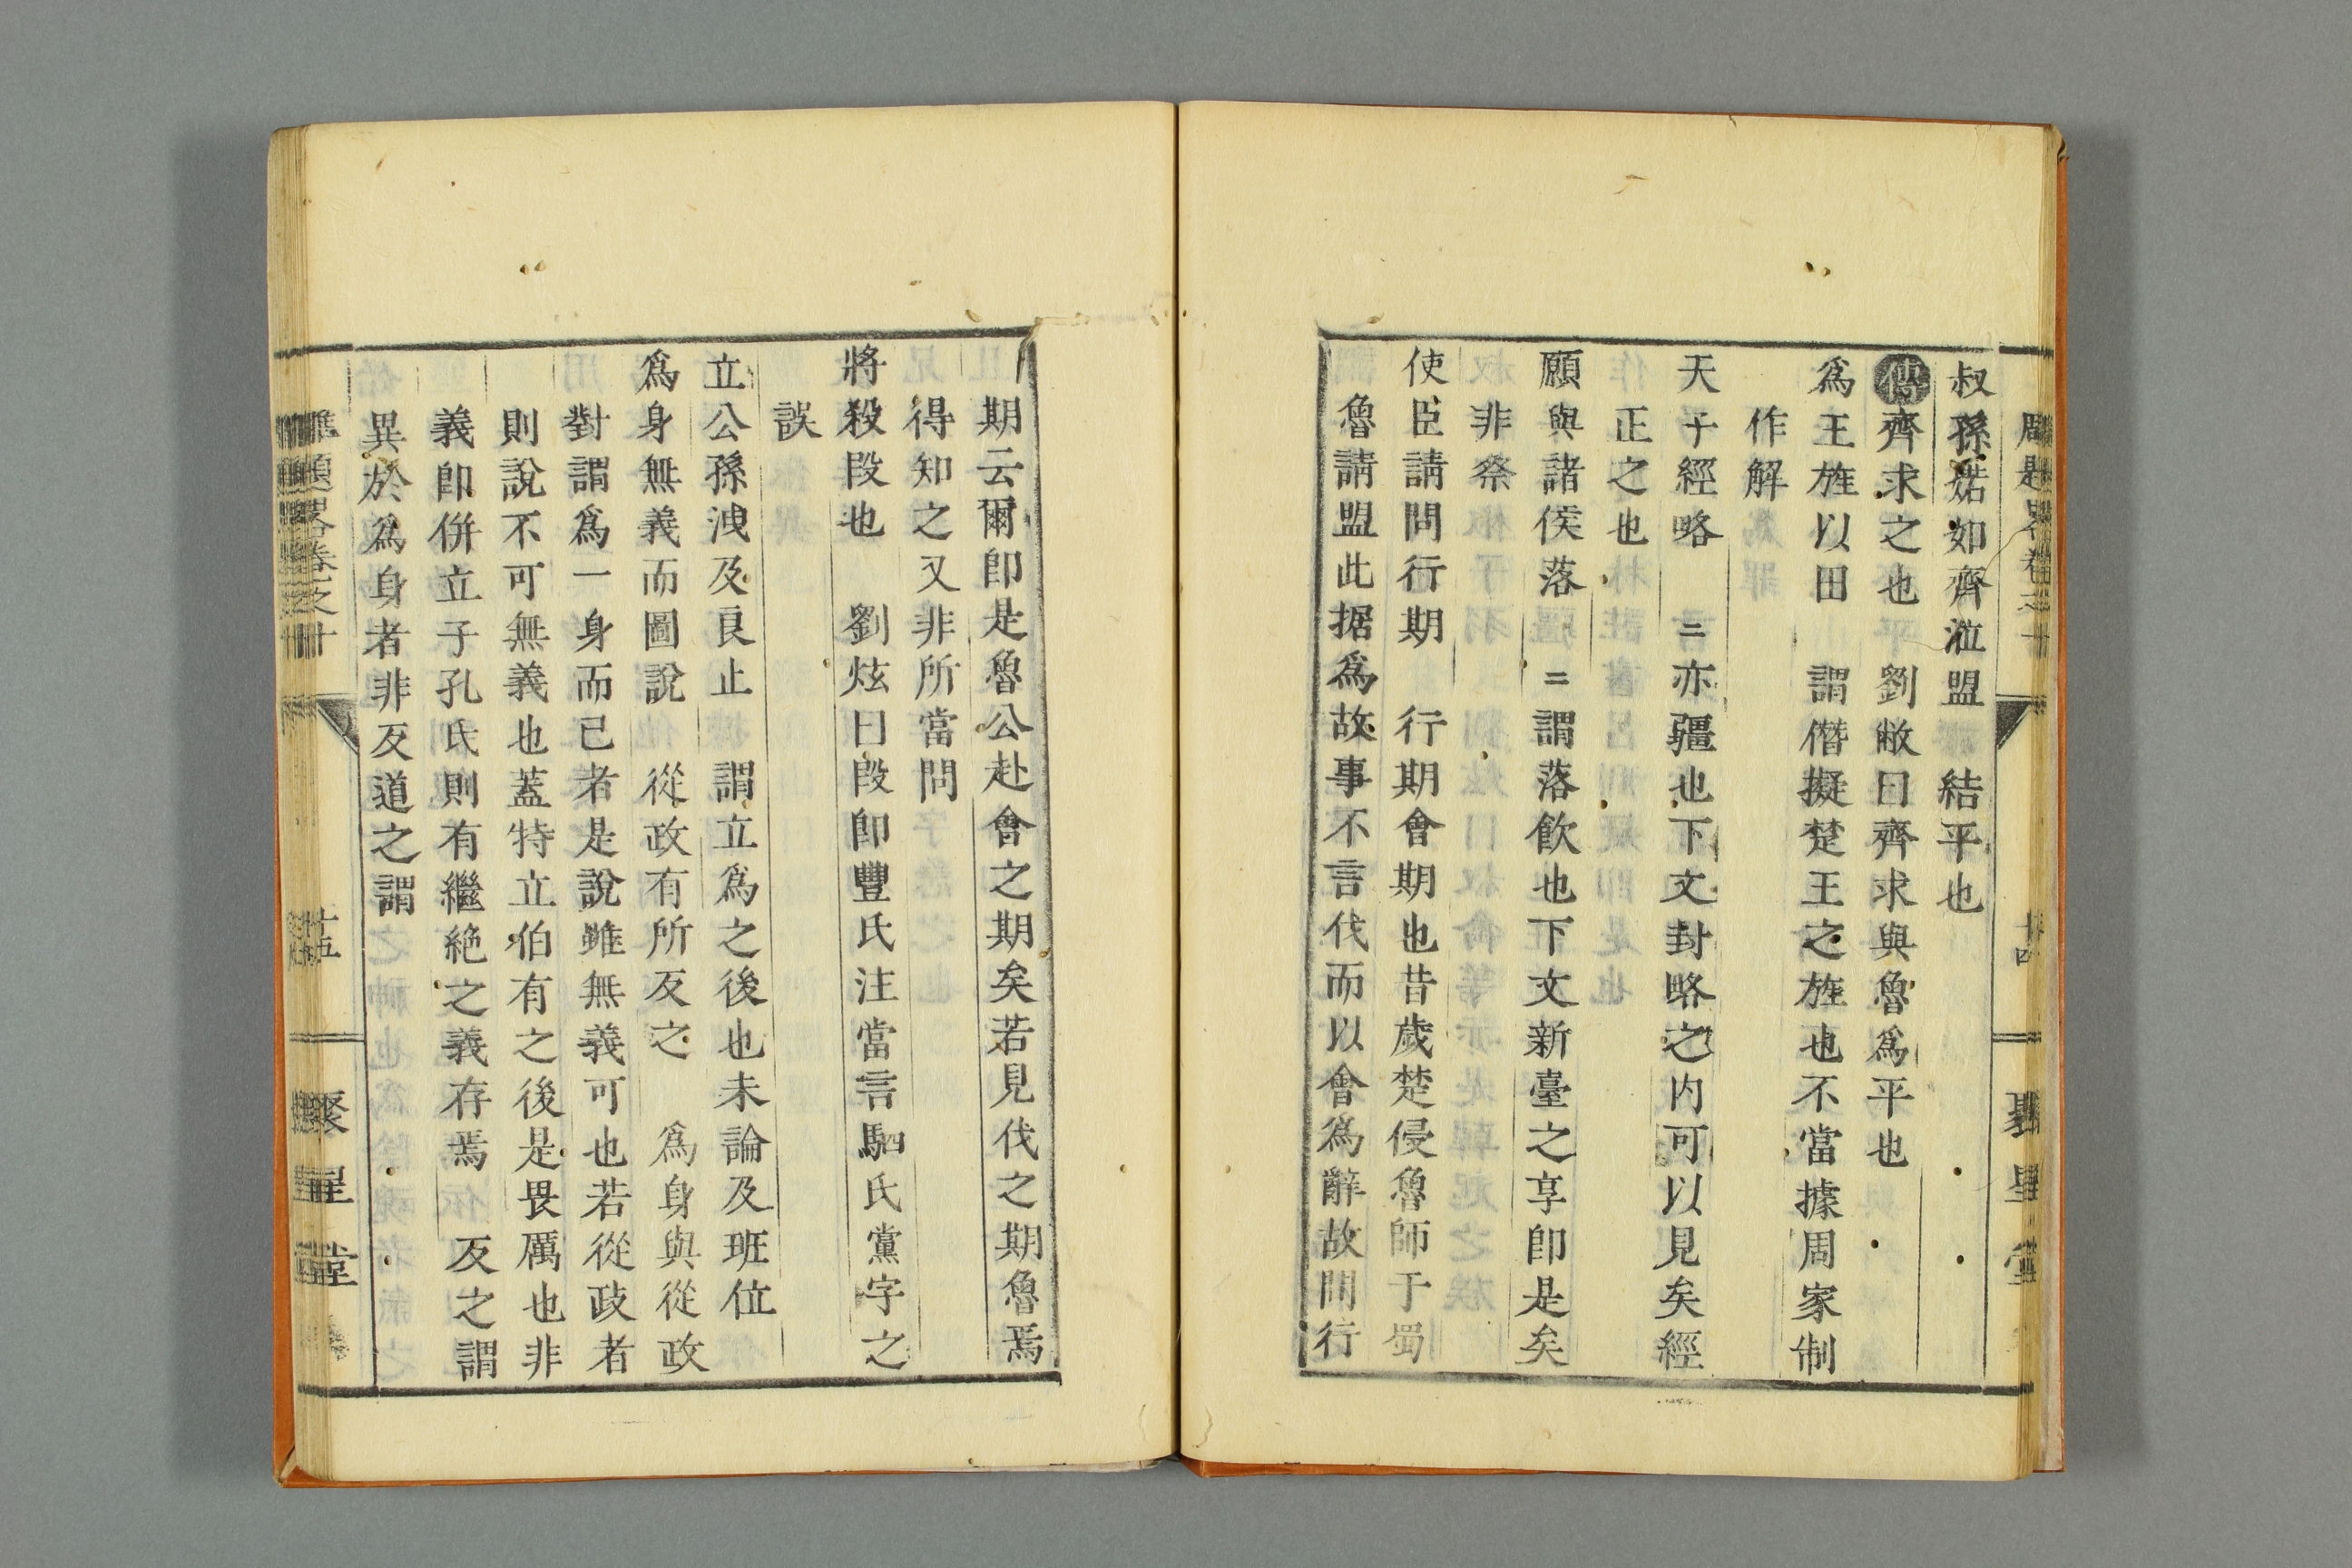 叔孫婼如齊涖盟　結平也
傳齊求之也　劉敞曰齊求與魯爲平也
爲王旌以田　謂僭擬楚王之旌也不當據周家制
作解
天子經略　二亦疆也下文封略之内可以見矣經
正之也
願與諸侯落　二謂落飲也下文新臺之享卽是矣
非祭
使臣請問行期　行期會期也昔歲楚侵魯師于蜀
魯請盟此据爲故事不言伐而以會爲辭故問行
期云爾卽是魯公赴會之期矣若見伐之期魯焉
得知之又非所當問
將殺段也　劉炫曰段卽豐氏注當言駟氏黨字之
誤
立公孫洩及良止　謂立爲之後也未論及班位
爲身無義而圖說　從政有所反之　爲身與從政
對謂爲一身而已者是說雖無義可也若從政者
則說不可無義也蓋特立伯有之後是畏厲也非
義卽併立子孔氏則有繼絶之義存焉　反之謂
異於爲身者非反道之謂
卷之十
十五
聚星堂
卷之十
十四
聚星堂